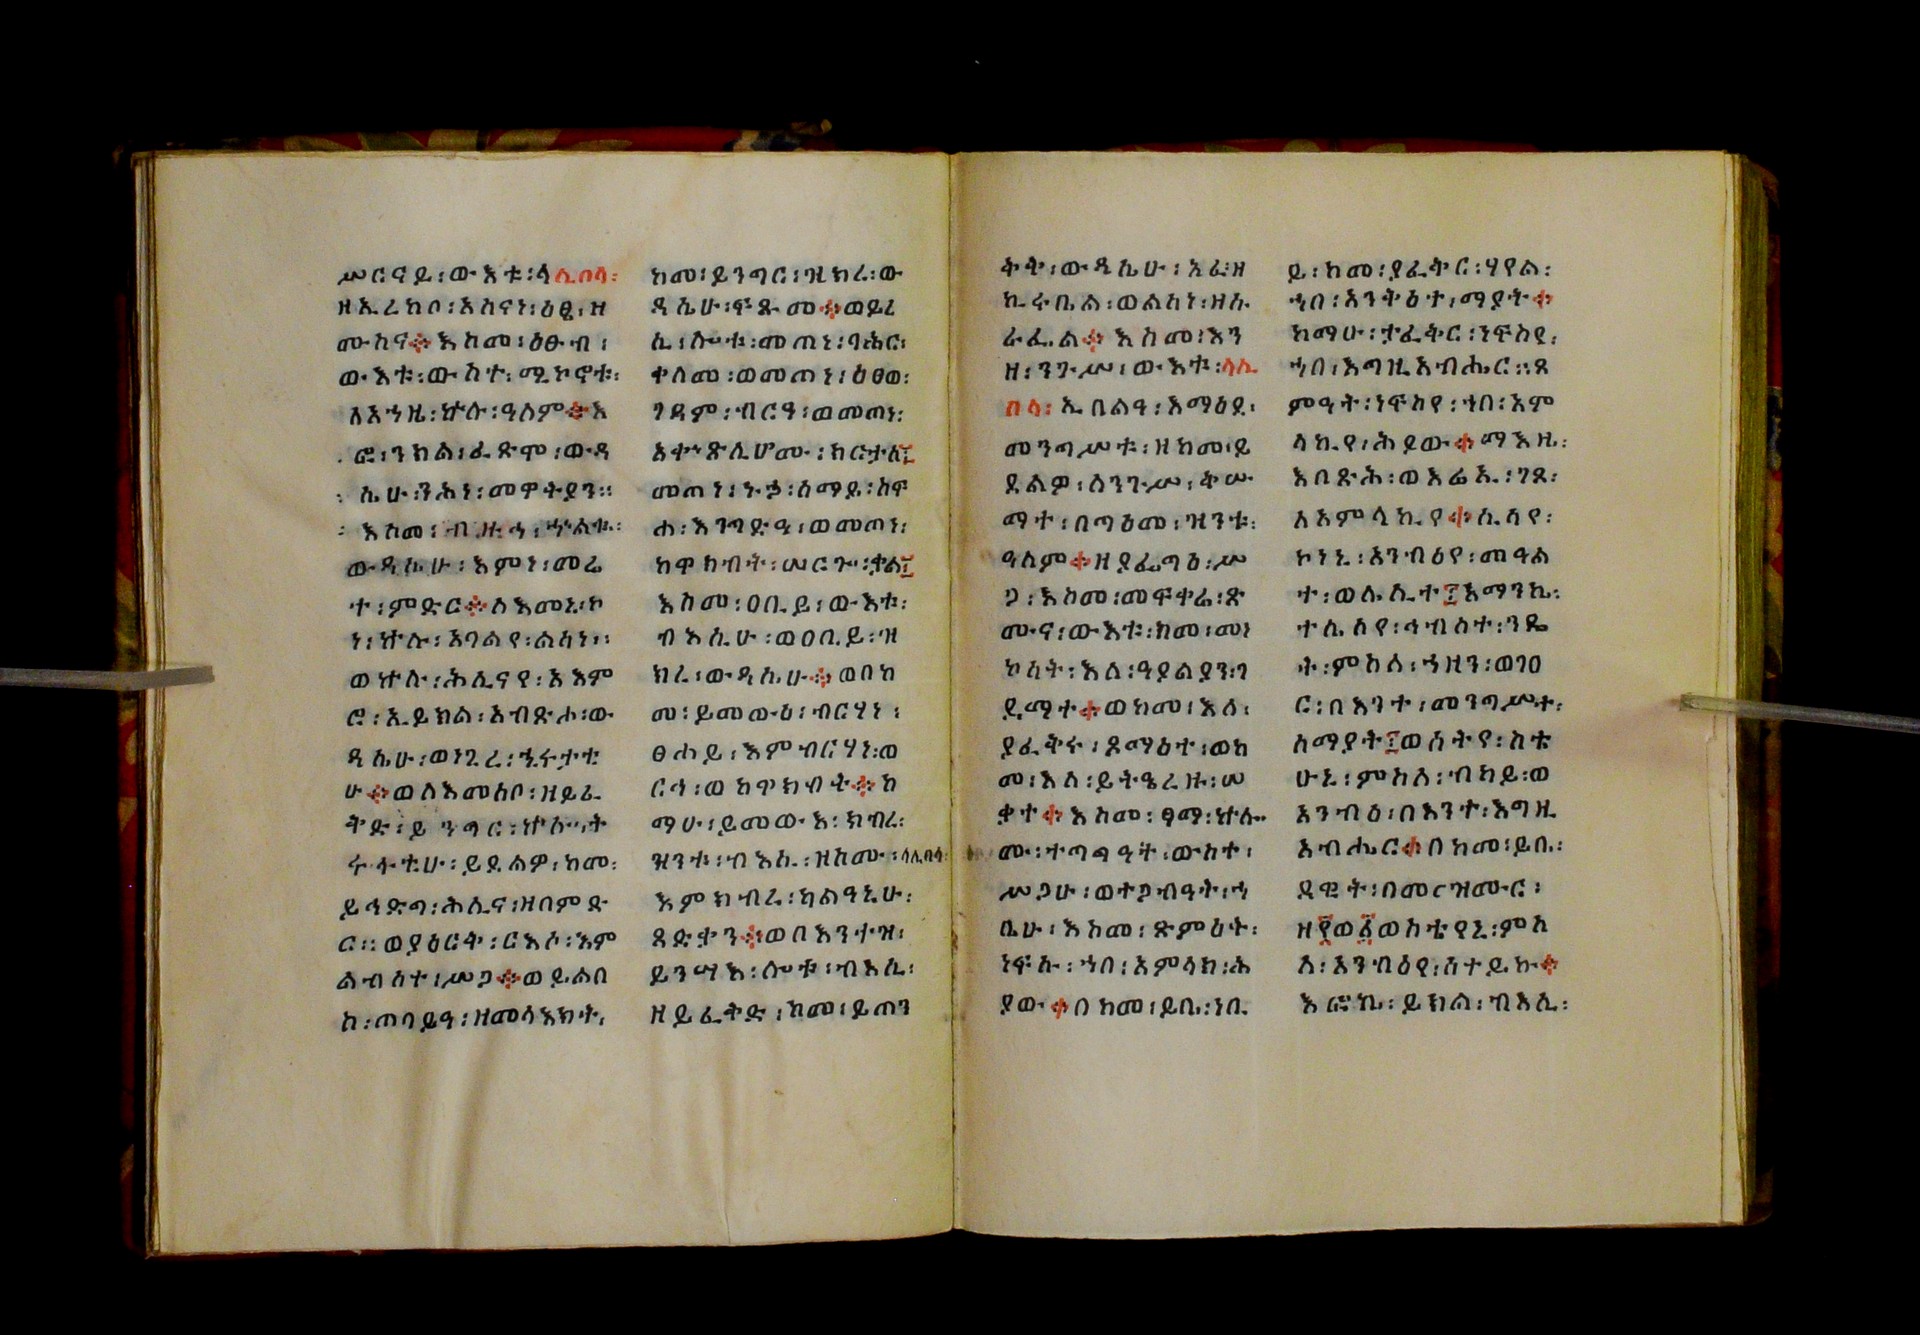 ሥርናይ፡ውእቱ፡ላሊበላ፡
ዘኢረከቦ፡አስናነ፡ዕፄ፡ዘ
ሙስና።እስመ፡ዕፁብ፡
ውእቱ፡ውስተ፡ሚኮኖቱ፡
ለአኀዜ፡ኵሉ፡ዓለም።እ
ፎ፡ንክል፡ፈጽሞ፡ውዳ
ሴሁ፡ንሕነ፡መዋትያን።
እስመ፡ብዙኅ፡ኁልቁ፡
ውዳሴሁ፡እምነ፡መሬ
ት፡ምድር።ለእመኒ፡ኮ
ነ፡ኵሉ፡አባልየ፡ልሳነ፡
ወኵሉ፡ሕሊናየ፡አእም
ሮ፡ኢይክል፡አብጽሖ፡ው
ዳሴሁ፡ወነጊረ፡ኂሩታቲ
ሁ።ወለእመሰቦ፡ዘይፈ
ቅድ፡ይንግር፡ኵሎ፡ት
ሩፋቲሁ፡ይደልዎ፡ከመ፡
ይኅድግ፡ሕሊና፡ዘበምድ
ር።ወያዕርቅ፡ርእሶ፡እም
ልብሰተ፡ሥጋ።ወይልበ
ስ፡ጠባይዓ፡ዘመላእክት፡
ከመ፡ይንግር፡ዝክረ፡ው
ዳሴሁ፡ፍጹመ።ወይረ
ሲ፡ሎቱ፡መጠነ፡ባሕር፡
ቀለመ፡ወመጠነ፡ዕፀወ፡
ገዳም፡ብርዓ፡ወመጠነ፡
አቀጽሊሆሙ፡ክርታሰ፤
መጠነ፡ኑኃ፡ሰማይ፡ስፍ
ሐ፡እንግድዓ፡ወመጠነ፡
ከዋክብት፡ሠርጐ፡ቃል፤
እስመ፡ዐቢይ፡ውእቱ፡
ብእሲሁ፡ወዐቢይ፡ዝ
ክረ፡ውዳሴሁ።ወበከ
መ፡ይመውዕ፡ብርሃነ፡
ፀሐይ፡እምብርሃነ፡ወ
ርኅ፡ወከዋክብት።ከ
ማሁ፡ይመውእ፡ክብረ፡
ዝንቱ፡ብእሲ፡ዘስሙ፡ላሊበላ፡
እምክብረ፡ካልዓኒሁ፡
ጻድቃን።ወበእንተዝ፡
ይንሣእ፡ሎቱ፡ብእሲ፡
ዘይፈቅድ፡ከመ፡ይጠን
ቅቅ፡ውዳሴሁ፡አፈ፡ዘ
ኪሩቤል፡ወልሳነ፡ዘሱ
ራፌል።እስመ፡እን
ዘ፡ንጉሥ፡ውእቱ፡ላሊ
በላ፡ኢበልዓ፡እማዕደ፡
መንግሥቱ፡ዘከመ፡ይ
ደልዎ፡ለንጉሥ፡ቅሡ
ማተ፡በጣዕመ፡ዝንቱ፡
ዓለም።ዘያፌግዕ፡ሥ
ጋ፡እስመ፡መፍቀሬ፡ጽ
ሙና፡ውእቱ፡ከመ፡መነ
ኮሳት፡እለ፡ዓያልያን፡ገ
ዳማተ።ወከመ፡እለ፡
ያፈቅሩ፡ጾማዕተ፡ወከ
መ፡እለ፡ይትዔረዙ፡ሠ
ቃተ።እስመ፡ፃማ፡ኵሎ
ሙ፡ተጣግዓት፡ውስተ፡
ሥጋሁ፡ወተጋብዓት፡ኀ
ቤሁ፡እስመ፡ጽምዕት፡
ነፍሱ፡ኀበ፡አምላክ፡ሕ
ያው።በከመ፡ይቤ፡ነቢ
ይ፡ከመ፡ያፈቅር፡ሃየል፡
ኀበ፡አንቅዕተ፡ማያት።
ከማሁ፡ታፈቅር፡ነፍስየ፡
ኀበ፡እግዚአብሔር።ጸ
ምዓት፡ነፍስየ፡ኀበ፡አም
ላኪየ፡ሕያው።ማእዜ፡
እበጽሕ፡ወእሬኢ፡ገጾ፡
ለአምላኪየ።ሲሳየ፡
ኮነኒ፡አንብዕየ፡መዓል
ተ፡ወሌሊተ፤እማንኬ፡
ተሴሰየ፡ኅብስተ፡ንዴ
ት፡ምስለ፡ኀዘን፡ወገዐ
ር፡በእንተ፡መንግሥተ፡
ሰማያት፤ወሰትየ፡ስቴ
ሁኒ፡ምስለ፡ብካይ፡ወ
አንብዕ፡በእንተ፡እግዚ
አብሔር።በከመ፡ይቤ፡
ዳዊት፡በመርዝሙር፡
ዘ፻ወ፩ወስቴየኒ፡ምስ
ለ፡አንብዕየ፡ሰተይኩ።
እፎኬ፡ይክል፡ብእሲ፡